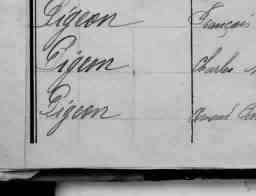 Pigeon François
Pigeon Charles
Pigeon